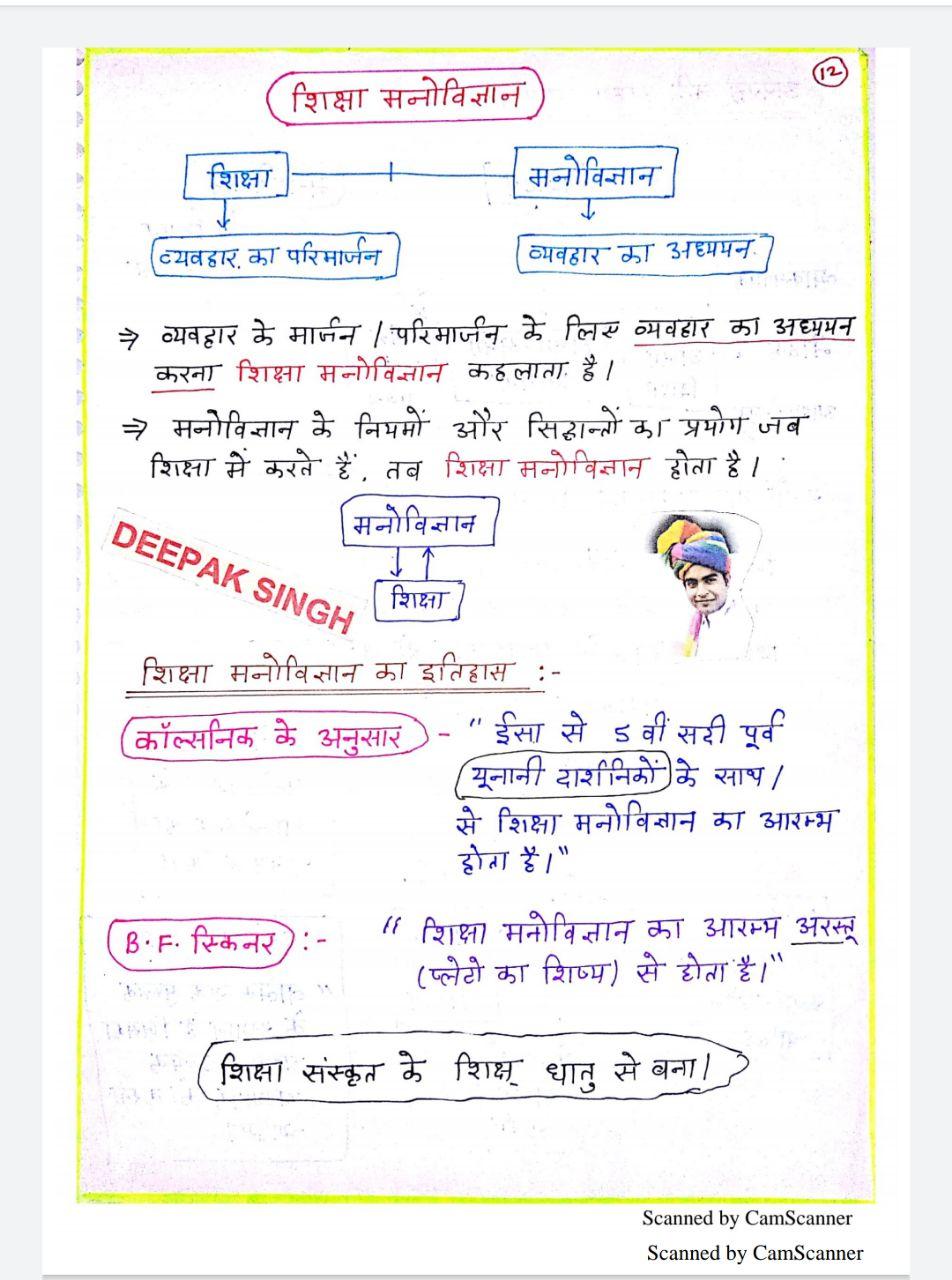 12
शिक्षा मनोविज्ञान
शिक्षा
मनोविज्ञान
व्यवहार का परिमार्जन
व्यवहार का अध्ययन
⇒ व्यवहार के मार्जन / परिमार्जन के लिए व्यवहार का अध्ययन
करना शिक्षा मनोविज्ञान कहलाता है।
⇒ मनोविज्ञान के नियमों और सिद्धान्तों का प्रयोग जब
शिक्षा में करते हैं, तब शिक्षा मनोविज्ञान होता है।
मनोविज्ञान
शिक्षा
DEEPAK SINGH
शिक्षा मनोविज्ञान का इतिहास :-
कॉल्सनिक के अनुसार - " ईसा से 5 वीं सदी पूर्व
यूनानी दार्शनिकों के साथ /
से शिक्षा मनोविज्ञान का आरम्भ
होता है।"
B.F. स्किनर :- " शिक्षा मनोविज्ञान का आरम्भ अरस्तू
(प्लेटो का शिष्य) से होता है।"
शिक्षा संस्कृत के शिक्ष् धातु से बना।
Scanned by CamScanner
Scanned by CamScanner